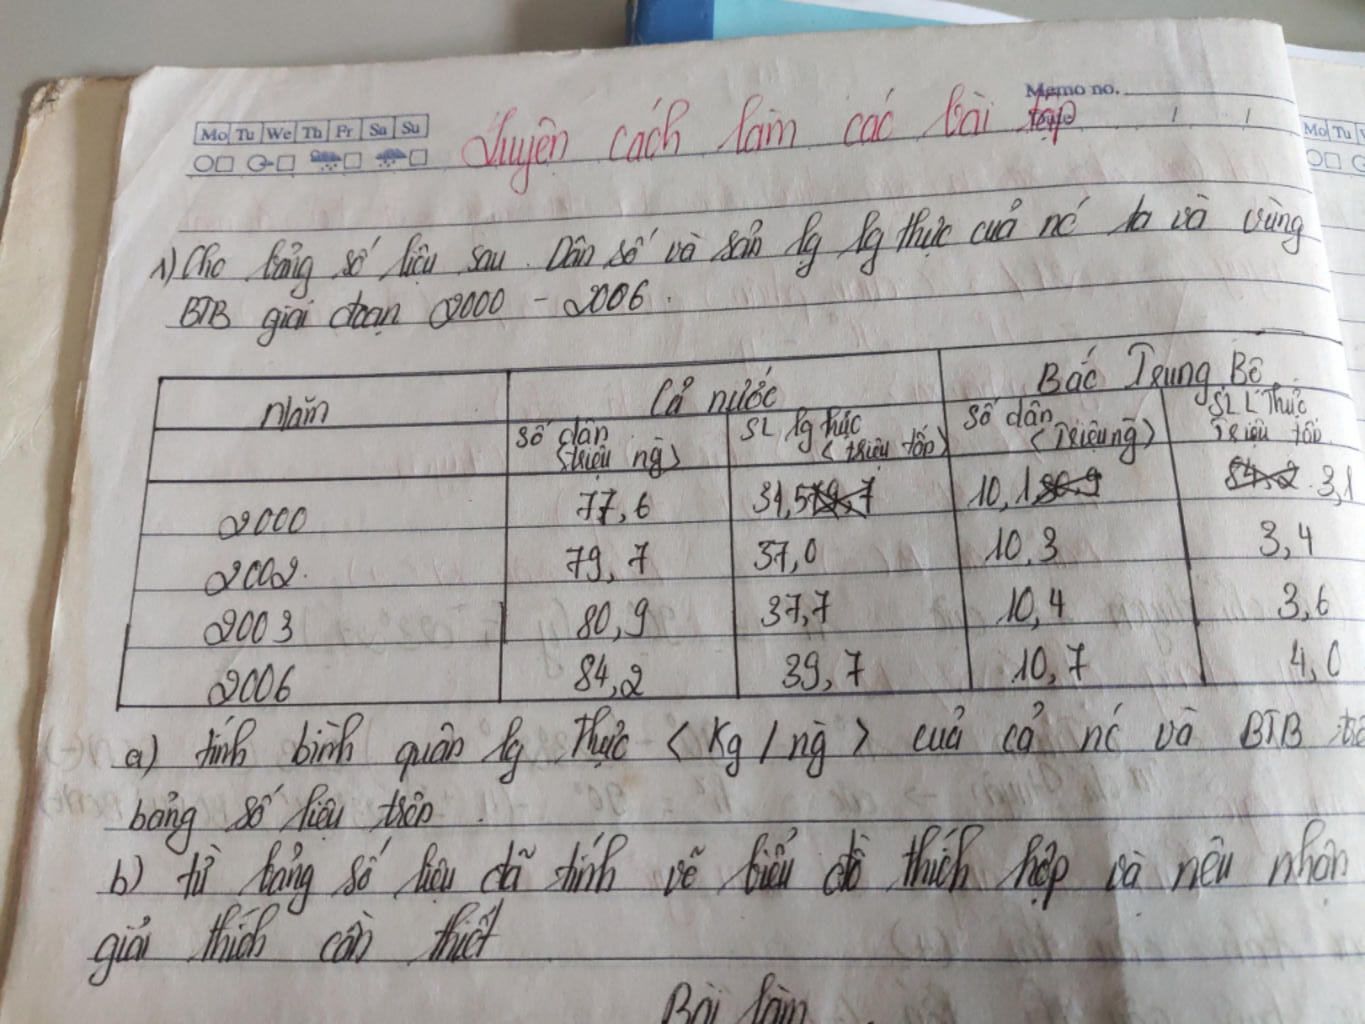 Memo no.
Mo Tu We Th Fr Sa Su
Luyện cách làm các bài tập
Mo Tu
1) Cho bảng số liệu sau. Dân số và sản lg lg thực cuả nc ta và vùng
BTB giai đoạn 2000 - 2006.
Năm Cả nước Bắc Trung Bộ
Số dân (triệu ng) SL lg thực (triệu tấn) Số dân (Triệu ng) SL L Thực Triệu tấn
2000 77,6 34,5 10,1 3,1
2002. 79,7 37,0 10,3 3,4
2003 80,9 37,7 10,4 3,6
2006 84,2 39,7 10,7 4,0
a) tính bình quân lg Thực <Kg/ng> cuả cả nc và BTB
bảng số liệu trên.
b) từ bảng số liệu đã tính vẽ biểu đồ thích hợp và nêu nhận
giải thích cần thiết
Bài làm